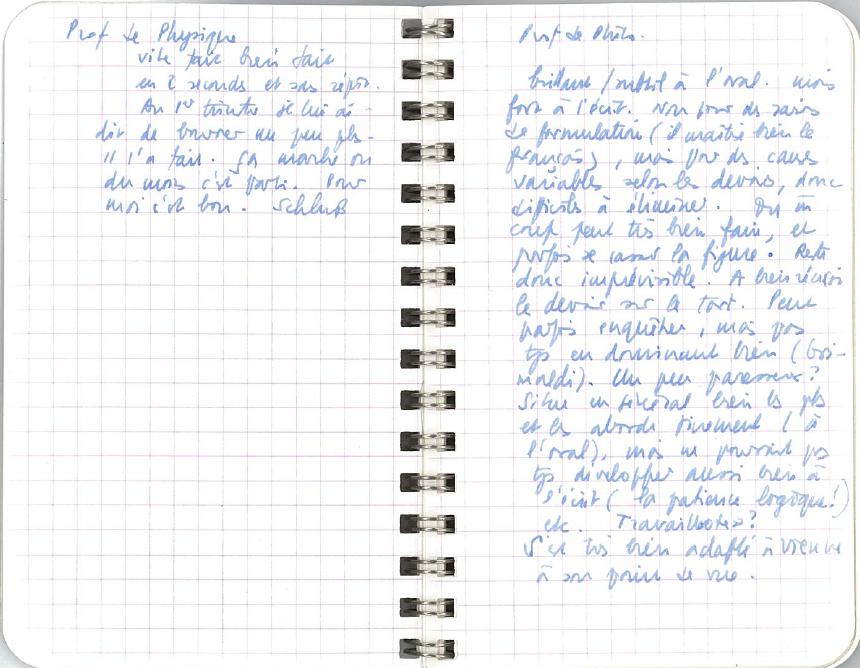 Prof de Physique
vite fait bien fait
en 2 seconds et sans répit.
Au 1er trimtre je lui ai
dit de bourrer un peu pls -
Il l'a fait. Ça marche ou
du mois c'est parti. Pour
moi c'est bon. Schluß
Prof de Philo.
brillant / subtil à l'oral. mois
fort à l'écrit. Non pour des raisos
de formulation (il maîtrie bien le
français), mais pour des causes
variables selon les devois, donc
difficiles à éliminer. Du
coup peut très bien faire, et
parfois se casser la figure. Reste
donc imprévisible. A bien réussi
le devoir sur le tort. Peut
parfois enquêter, mais pas
tjs en dominant bien (Gri-
maldi). Un peu paresseux?
Situe en général bien les pbs
et les aborde finement (à
l'oral), mais ne pouvant pas
tjs développer aussi bien à
l'écrit (la patience logique!)
etc. Travaillotes?
S'est très bien adapté à Vienne
à son point de vue.